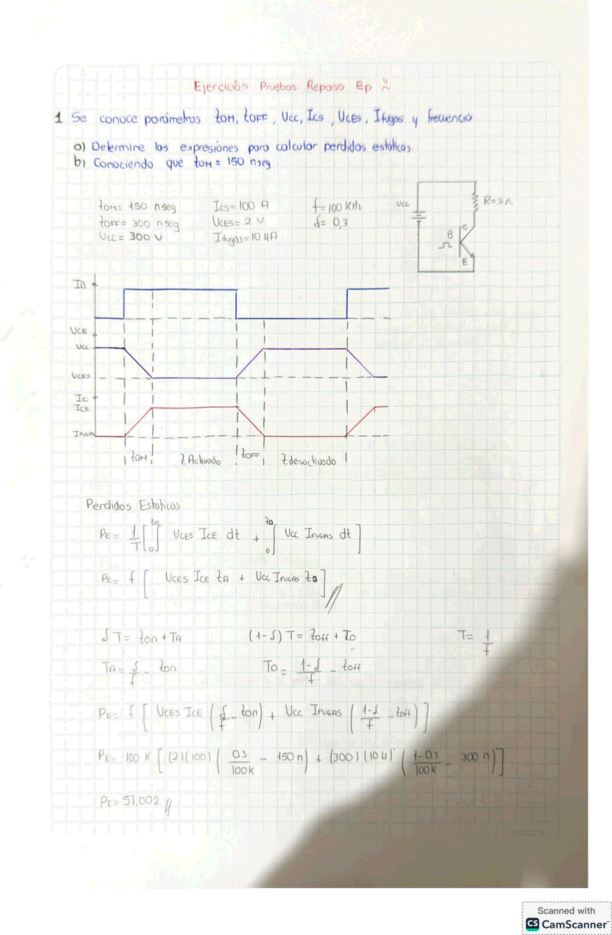 Ejercicios Pruebas Repaso Ep
1 Se conoce parámetros tON, tOFF, Vcc, Ics, VCES, Ifugas y frecuencia
a) Determine las expresiones para calcular perdidas estaticas.
b) Conociendo que tON = 150 nseg
tON= 150 nseg ICS=100 A f=100 KHz
tOFF= 300 nseg VCES= 2 V δ= 0,3
VCC= 300 V Ifugas=10 µA
VCC
R=3Ω
B
C
E
IB
VCE
VCC
VCES
IC
ICE
IFUGA
tON
tActivado
tOFF
tdesactivado
Perdidas Estaticas
PE= 1/T [ ∫0^ta VCES ICE dt + ∫0^to VCC IFUGAS dt ]
PE= f [ VCES ICE tA + VCC IFUGAS to ] //
δT= ton + TA (1-δ) T= toff + To T= 1/f
TA= δ/f - ton TO= 1-δ/f - toff
PE= f [ VCES ICE ( δ/f - ton ) + VCC IFUGAS ( 1-δ/f - toff ) ]
PE= 100 K [ (2)(100) ( 0,3/100k - 150 n ) + (300)(10 µ) ( 1-0,3/100k - 300 n ) ]
PE= 57,002 //
Scanned with
CS CamScanner